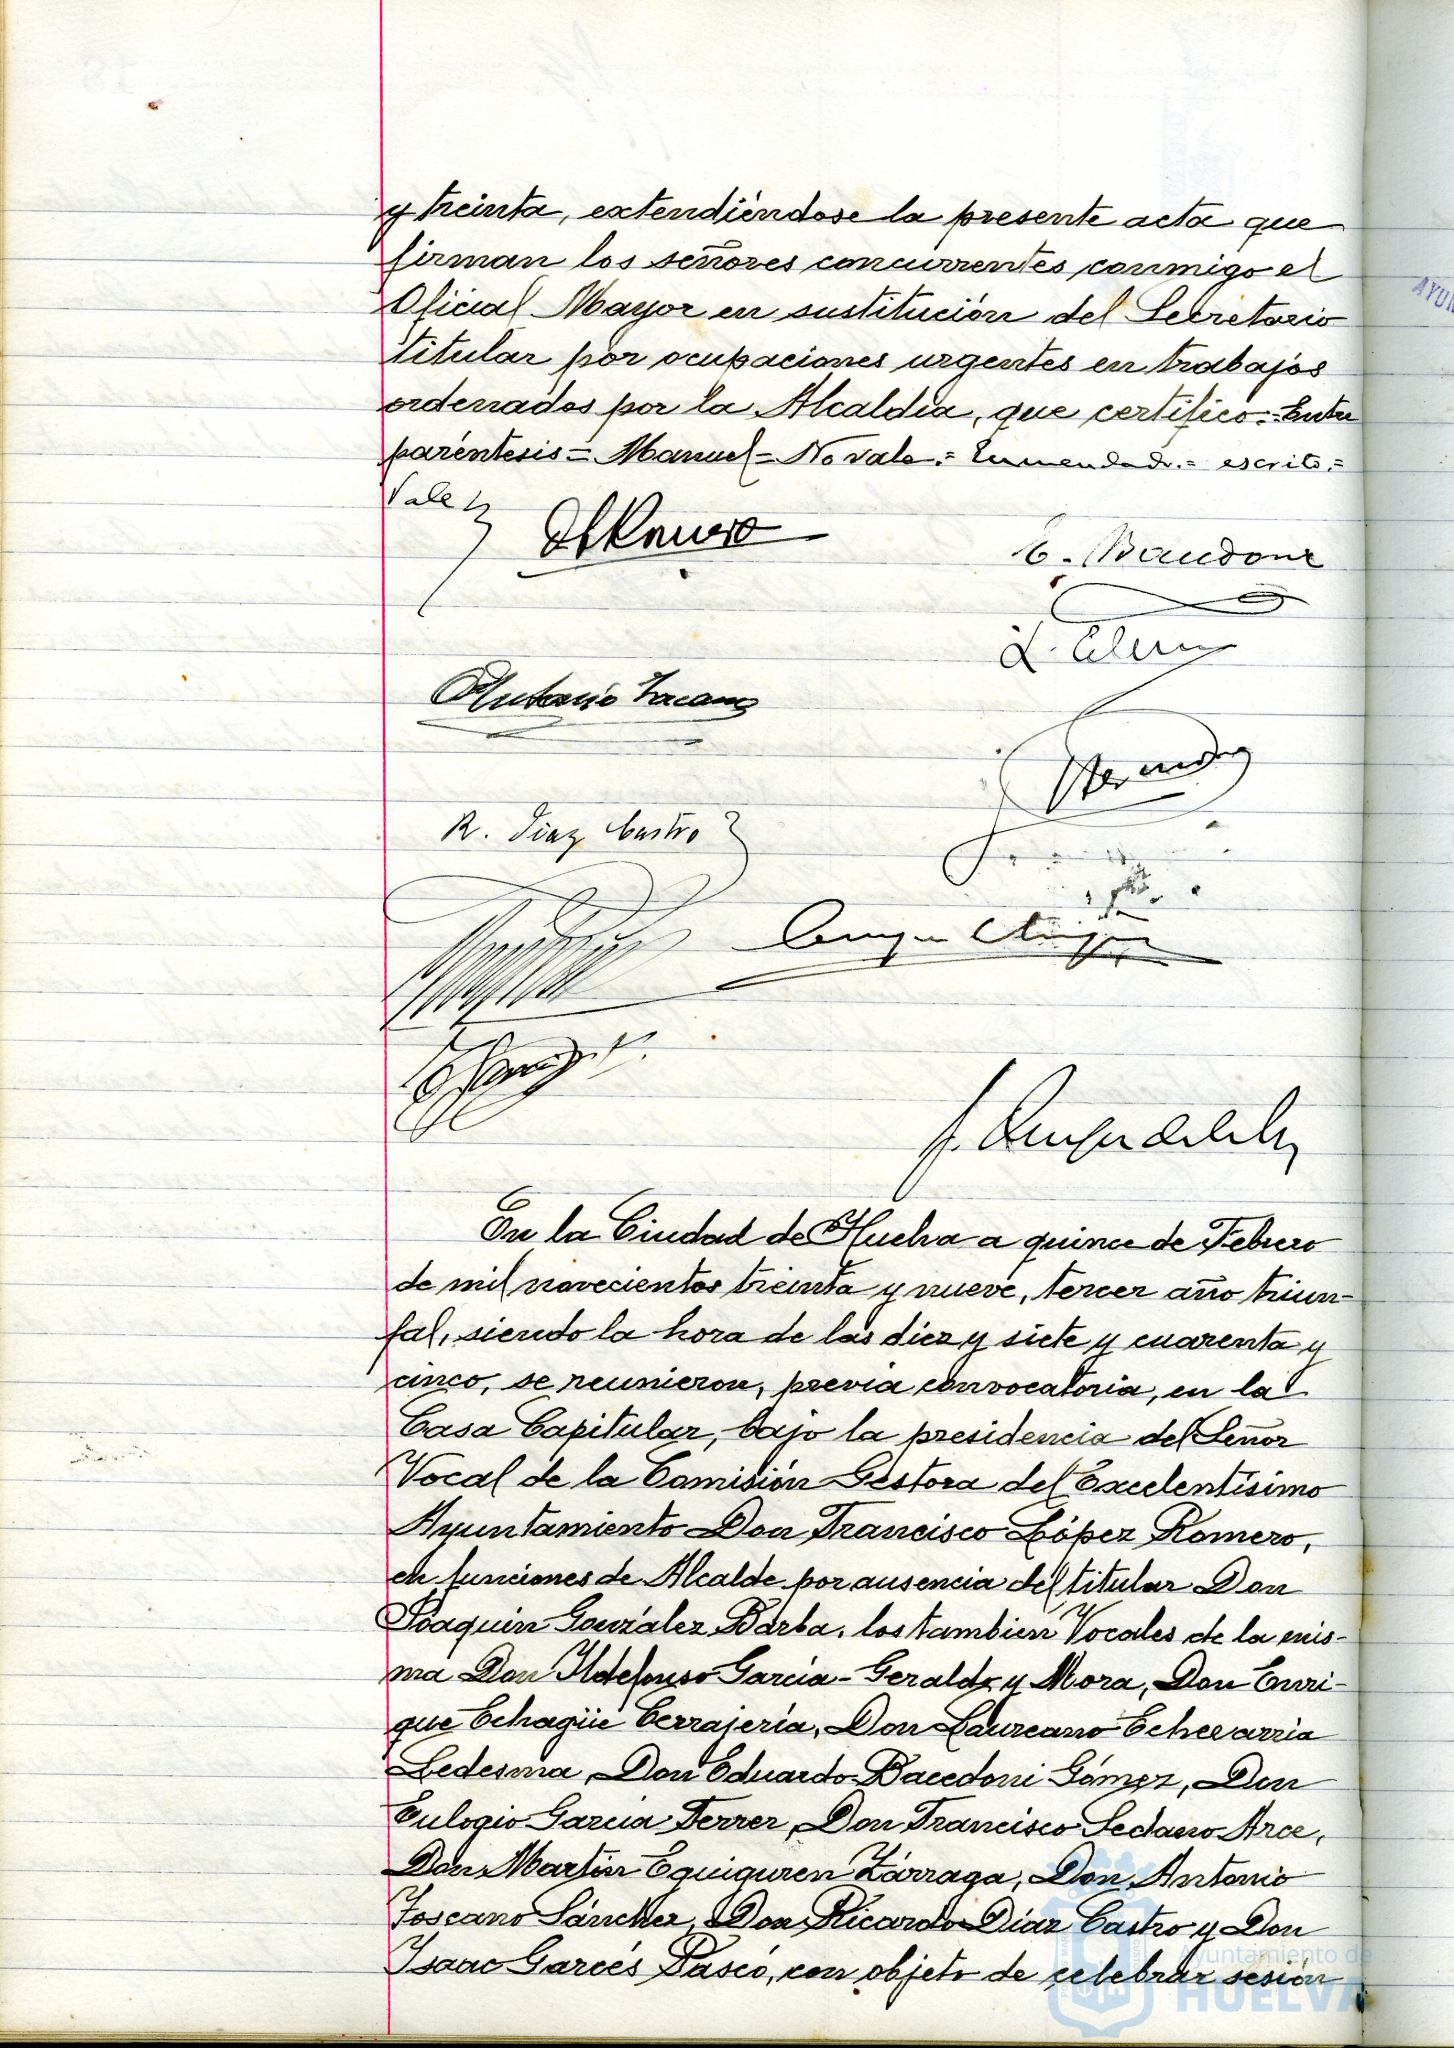 y treinta, extendiéndose la presente acta que
firman los señores concurrentes conmigo el
Oficial Mayor en sustitución del Secretario
titular por ocupaciones urgentes en trabajos
ordenados por la Alcaldía, que certifico.=Entre
paréntesis=Manuel=No vale.=Enmendado.=escrito.=
Vale
Antonio Toscano
R. Diaz Castro
En la Ciudad de Huelva a quince de Febrero
de mil novecientos treinta y nueve, tercer año triun-
fal, siendo la hora de las diez y siete y cuarenta y
cinco, se reunieron, previa convocatoria, en la
Casa Capitular, bajo la presidencia del Señor
Vocal de la Comisión Gestora del Excelentísimo
Ayuntamiento Don Francisco López Romero,
en funciones de Alcalde por ausencia del titular Don
Joaquín González Barba, los también Vocales de la mis-
ma Don Ildefonso García-Geraldy y Mora, Don Enri-
que Echagüe Cerrajería, Don Laureano Echevarria
Ledesma, Don Eduardo Bacedoni Gómez, Don
Eulogio García Ferrer, Don Francisco Sedano Arce,
Don Martín Eguiguren Zárraga, Don Antonio
Toscano Sánchez, Don Ricardo Díaz Castro y Don
Isaac Garcés Pascó, con objeto de celebrar sesión
Ayuntamiento de
HUELVA